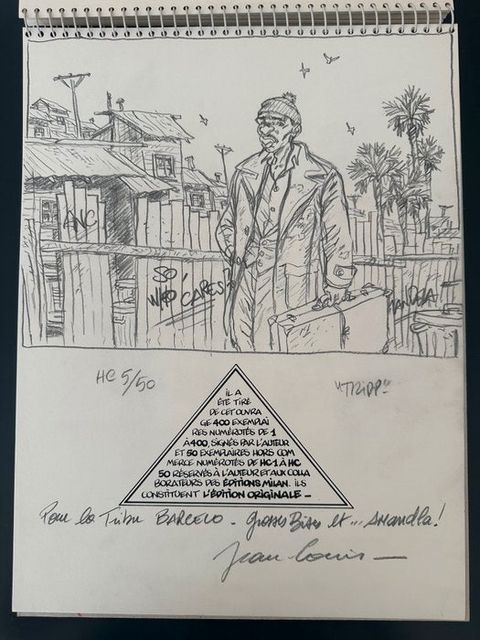 ANC
SO,
WHO CARES?
MANDELA
HC 5/50
"TRIPP"
IL A
ÉTÉ TIRÉ
DE CET OUVRA
GE 400 EXEMPLAI
RES NUMÉROTÉS DE 1
À 400, SIGNÉS PAR L'AUTEUR
ET 50 EXEMPLAIRES HORS COM
MERCE NUMÉROTÉS DE HC 1 À HC
50 RÉSERVÉS À L'AUTEUR ET AUX COLLA
BORATEURS DES ÉDITIONS MILAN. ILS
CONSTITUENT L'ÉDITION ORIGINALE —
Pour la Tribu BARCELO - Grosses Bises et... AMANDLA!
Jean-Louis —